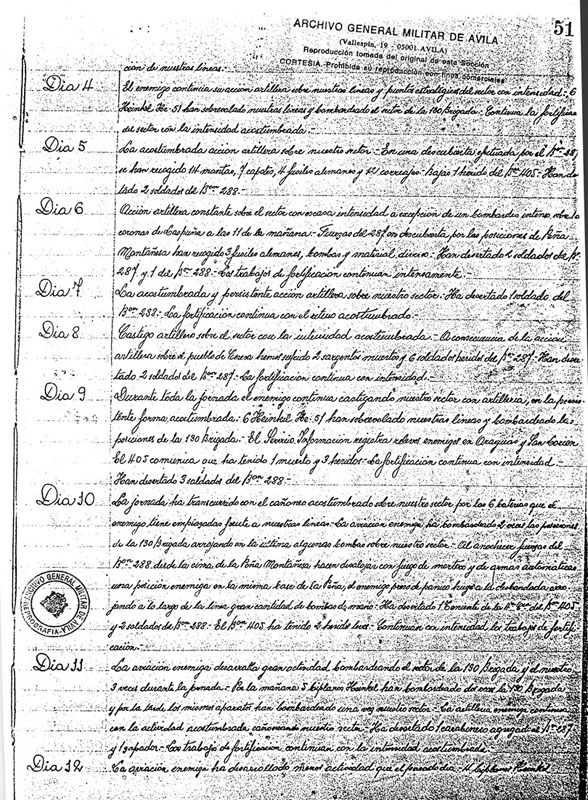 51
ARCHIVO GENERAL MILITAR DE AVILA
(Vallespin, 19 - 05001 AVILA)
Reproducción tomada del original de esta Sección
CORTESIA - Prohibida su reproducción con fines comerciales
ción de nuestras líneas.
Dia 4 El enemigo continúa su acción artillera sobre nuestras líneas y puntos estratégicos del sector con intensidad.- 6
Heinkel He-51 han sobrevolado nuestras líneas y bombardeado el sector de la 130 Brigada.- Continúa la fortificación
del sector con la intensidad acostumbrada.-
Dia 5 La acostumbrada acción artillera sobre nuestro sector.- En una descubierta efectuada por el Bon 287
se han recogido 14 mantas, 7 capotes, 4 fusiles alemanes y correajes.- Bajas 1 herido del Bon 405.- Han deser-
tado 2 soldados del Bon 288.-
Dia 6 Acción artillera constante sobre el sector con escasa intensidad a excepción de un bombardeo intenso sobre las
coronas de Laspuña a las 11 de la mañana.- Fuerzas del 287 en descubierta por las posiciones de Peña
Montañesa han recogido 3 fusiles alemanes, bombas y material diverso.- Han desertado 2 soldados del Bon
287 y 1 del Bon 288.- Los trabajos de fortificación continúan intensamente.-
Dia 7 La acostumbrada y persistente acción artillera sobre nuestro sector.- Ha desertado 1 soldado del
Bon 288.- La fortificación continúa con el ritmo acostumbrado.-
Dia 8 Castigo artillero sobre el sector con la intensidad acostumbrada.- A consecuencia de la acción
artillera sobre el pueblo de Ceresa hemos sufrido 2 sargentos muertos y 6 soldados heridos del Bon 287.- Han deser-
tado 2 soldados del Bon 287.- La fortificación continúa con intensidad.-
Dia 9 Durante toda la jornada el enemigo continúa castigando nuestro sector con artillería, en la persis-
tente forma acostumbrada.- 6 Heinkel He-51 han sobrevolado nuestras líneas y bombardeado las
posiciones de la 130 Brigada.- El Servicio Información registra relevos enemigos en Oraguas y San Lorien
El 405 comunica que ha tenido 1 muerto y 3 heridos.- La fortificación continúa con intensidad.-
Han desertado 3 soldados del Bon 288.-
Dia 10 La jornada ha transcurrido con el cañoneo acostumbrado sobre nuestro sector por las 6 baterías que el
enemigo tiene emplazadas frente a nuestras líneas.- La aviación enemiga ha bombardeado 2 veces las posiciones
de la 130 Brigada arrojando en la última algunas bombas sobre nuestro sector.- Al anochecer fuerzas del
Bon 288 desde la cima de la Peña Montañesa hacen desalojar con fuego de mortero y de armas automáticas
una posición enemiga en la misma base de la Peña, el enemigo preso de pánico huye a la desbandada arro-
jando a lo largo de la línea gran cantidad de bombas de mano.- Ha desertado 1 Teniente de la Cia del Bon 405
y 2 soldados del Bon 288.- El Bon 405 ha tenido 2 heridos leves.- Continúan con intensidad los trabajos de fortifi-
cación.-
ARCHIVO GENERAL MILITAR DE AVILA
Dia 11 La aviación enemiga desarrolla gran actividad bombardeando el sector de la 130 Brigada y el nuestro
3 veces durante la jornada.- Por la mañana 5 biplanos Heinkel han bombardeado dos veces la 130 Brigada
y por la tarde los mismos aparatos han bombardeado una vez nuestro sector.- La artillería enemiga continúa
con la actividad acostumbrada cañoneando nuestro sector.- Ha desertado 1 carabinero agregado al Bon 287
y 1 zapador.- Los trabajos de fortificación continúan con la intensidad acostumbrada.-
Dia 12 La aviación enemiga ha desarrollado menos actividad que el pasado día.- 4 biplanos Heinkel